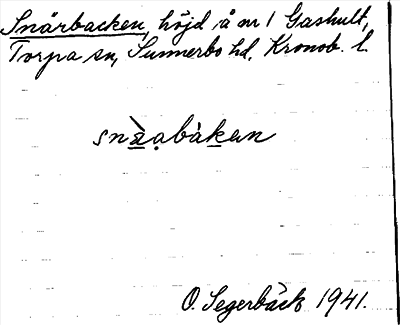 Snärbacken, höjd å nr 1 Gashult,
Torpa sn, Sunnerbo hd, Kronob. l.
snä̀ạbàken
O. Segerbäck 1941.